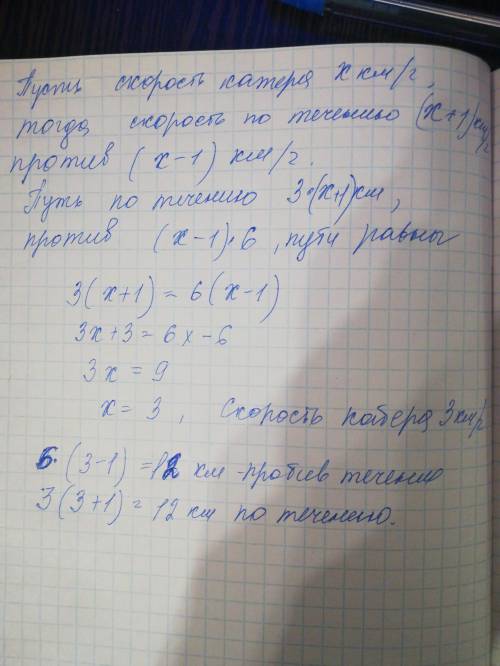 Пусть скорость катера x км/г,
тогда скорость по течению (x+1) км/г
против (x-1) км/г.
Путь по течению 3·(x+1)км,
против (x-1)·6, пути равны
3(x+1)=6(x-1)
3x+3=6x-6
3x=9
x=3, Скорость катера 3 км/г
6·(3-1)=12 км -против течения
3(3+1)=12 км по течению.